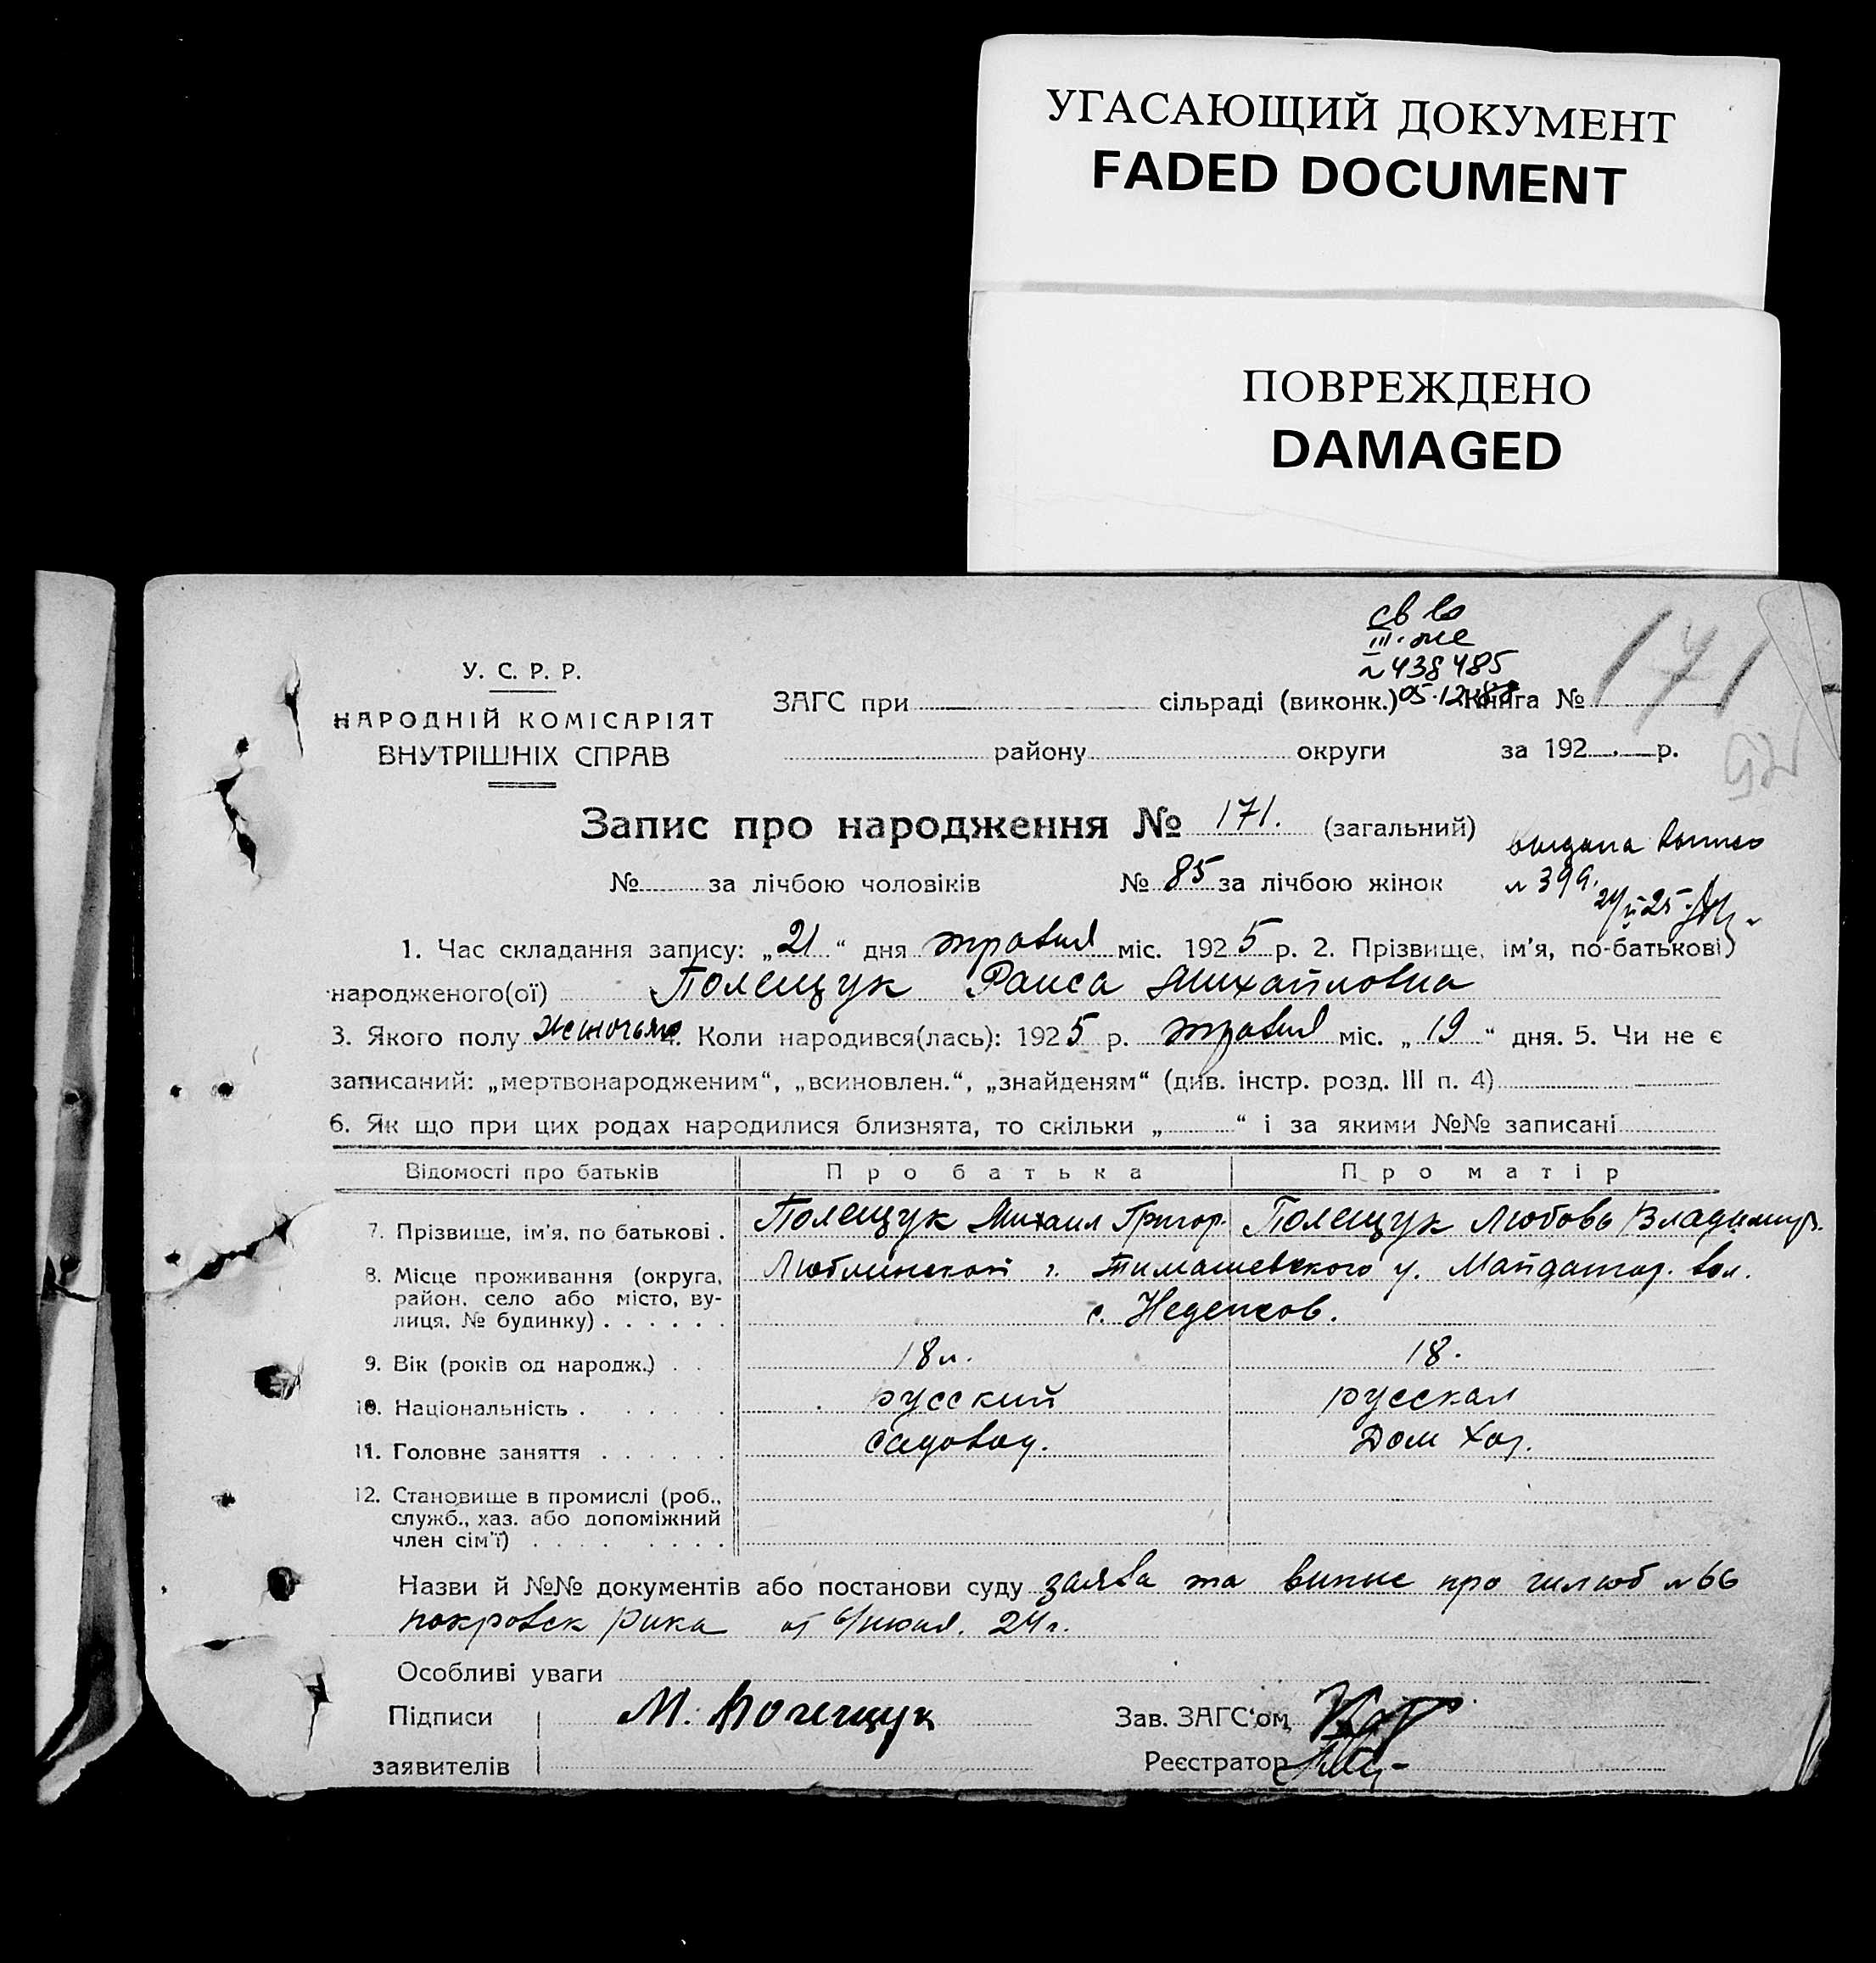 УГАСАЮЩИЙ ДОКУМЕНТ
FADED DOCUMENT
ПОВРЕЖДЕНО
DAMAGED
св во
III-же
№ 438485
05.12.88
171
У. С. Р. Р.
НАРОДНІЙ КОМІСАРІЯТ
ВНУТРІШНІХ СПРАВ
ЗАГС при сільраді (виконк.) Книга №
району округи за 192 р.
Запис про народження № 171. (загальний)
№ за лічбою чоловіків № 85 за лічбою жінок
выдана
№ 399.
1. Час складання запису: „21“ дня травня міс. 1925 р. 2. Прізвище, ім'я, по-батькові
народженого(ої) Полещук Раиса Михайловна
3. Якого полу жіночого 4. Коли народився(лась): 1925 р. травня міс. „19“ дня. 5. Чи не є
записаний: „мертвонародженим“, „всиновлен.“, „знайденям“ (див. інстр. розд. III п. 4)
6. Як що при цих родах народилися близнята, то скільки „ “ і за якими №№ записані
Відомості про батьків Про батька Про матір
7. Прізвище, ім'я, по батькові . Полещук Михаил Григор. Полещук Любовь Владимир.
8. Місце проживання (округа, район, село або місто, вулиця, № будинку) Люблинской г. у. вол.
с.
9. Вік (років од народж.) 18 л. 18.
10. Національність русский русская
11. Головне заняття садовод. Дом хоз.
12. Становище в промислі (роб.,
служб., хаз. або допоміжний
член сім'ї)
Назви й №№ документів або постанови суду заява та випис про шлюб № 66
покровск рика от 6/июня. 24 г.
Особливі уваги
Підписи М. Полещук Зав. ЗАГС'ом
заявителів Реєстратор